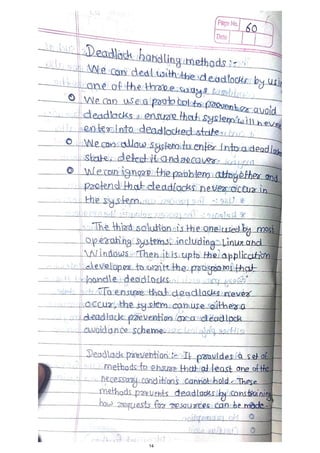 Page No. 60
Date
Deadlock handling methods :-
We can deal with the deadlocks by usi
one of the three ways
We can use a protocol to prevent or avoid
deadlocks, ensure that system will never
enter into deadlocked state
We can allow system to enter into a deadlock
state, detect it and recover
We can ignore the problem altogether and
pretend that deadlocks never occur in
the system.
The third solution is the one used by most
operating systems, including Linux and
Windows. Then it is upto the application
developer to write the programs that
handle deadlocks
To ensure that deadlocks never
occur, the system can use either a
deadlock prevention or a deadlock
avoidance scheme.
Deadlock prevention :- It provides a set of
methods to ensure that at least one of the
necessary conditions cannot hold. These
methods prevents deadlocks by constraining
how requests for resources can be made.
14